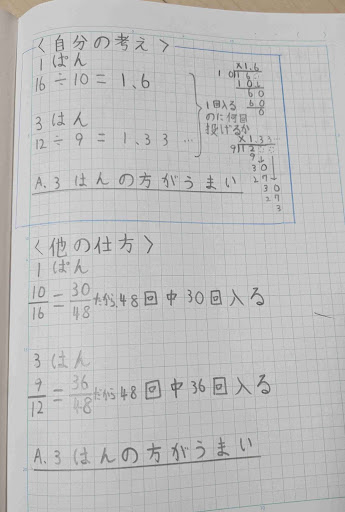 <自分の考え>
1ぱん
16÷10=1.6
3ぱん
12÷9=1.33…
1回入る
のに何回
投げるか
×1.6
10)16
10
60
60
0
×1.33
9)12
9
30
27
30
27
3
A.3はんの方がうまい
<他の仕方>
1ぱん
10/16=30/48だから48回中30回入る
3はん
9/12=36/48だから48回中36回入る
A.3はんの方がうまい